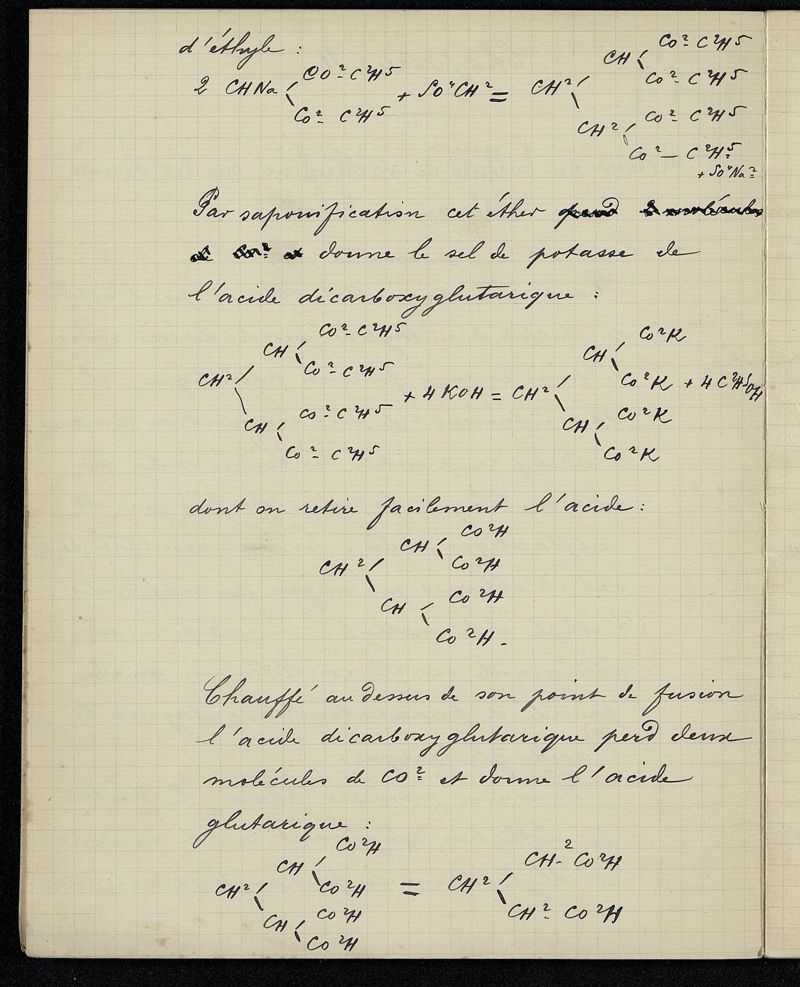 d'éthyle :
CO²-C²H⁵
CH
CO²-C²H⁵
2 CHNa
CO²-C²H⁵
CO²-C²H⁵
+ SO⁴CH² =
CH²
CH²
CO²-C²H⁵
CO²-C²H⁵
+ SO⁴Na²
Par saponification cet éther
donne le sel de potasse de
l'acide dicarboxyglutarique :
CH²
CH
CO²-C²H⁵
CO²-C²H⁵
CH
CO²-C²H⁵
CO²-C²H⁵
+ 4 KOH =
CH²
CH
CO²K
CO²K
CH
CO²K
CO²K
+ 4 C²H⁵OH
dont on retire facilement l'acide :
CH²
CH
CO²H
CO²H
CH
CO²H
CO²H.
Chauffé au dessus de son point de fusion
l'acide dicarboxyglutarique perd deux
molécules de CO² et donne l'acide
glutarique :
CH²
CH
CO²H
CO²H
CH
CO²H
CO²H
=
CH²
CH²-CO²H
CH²-CO²H